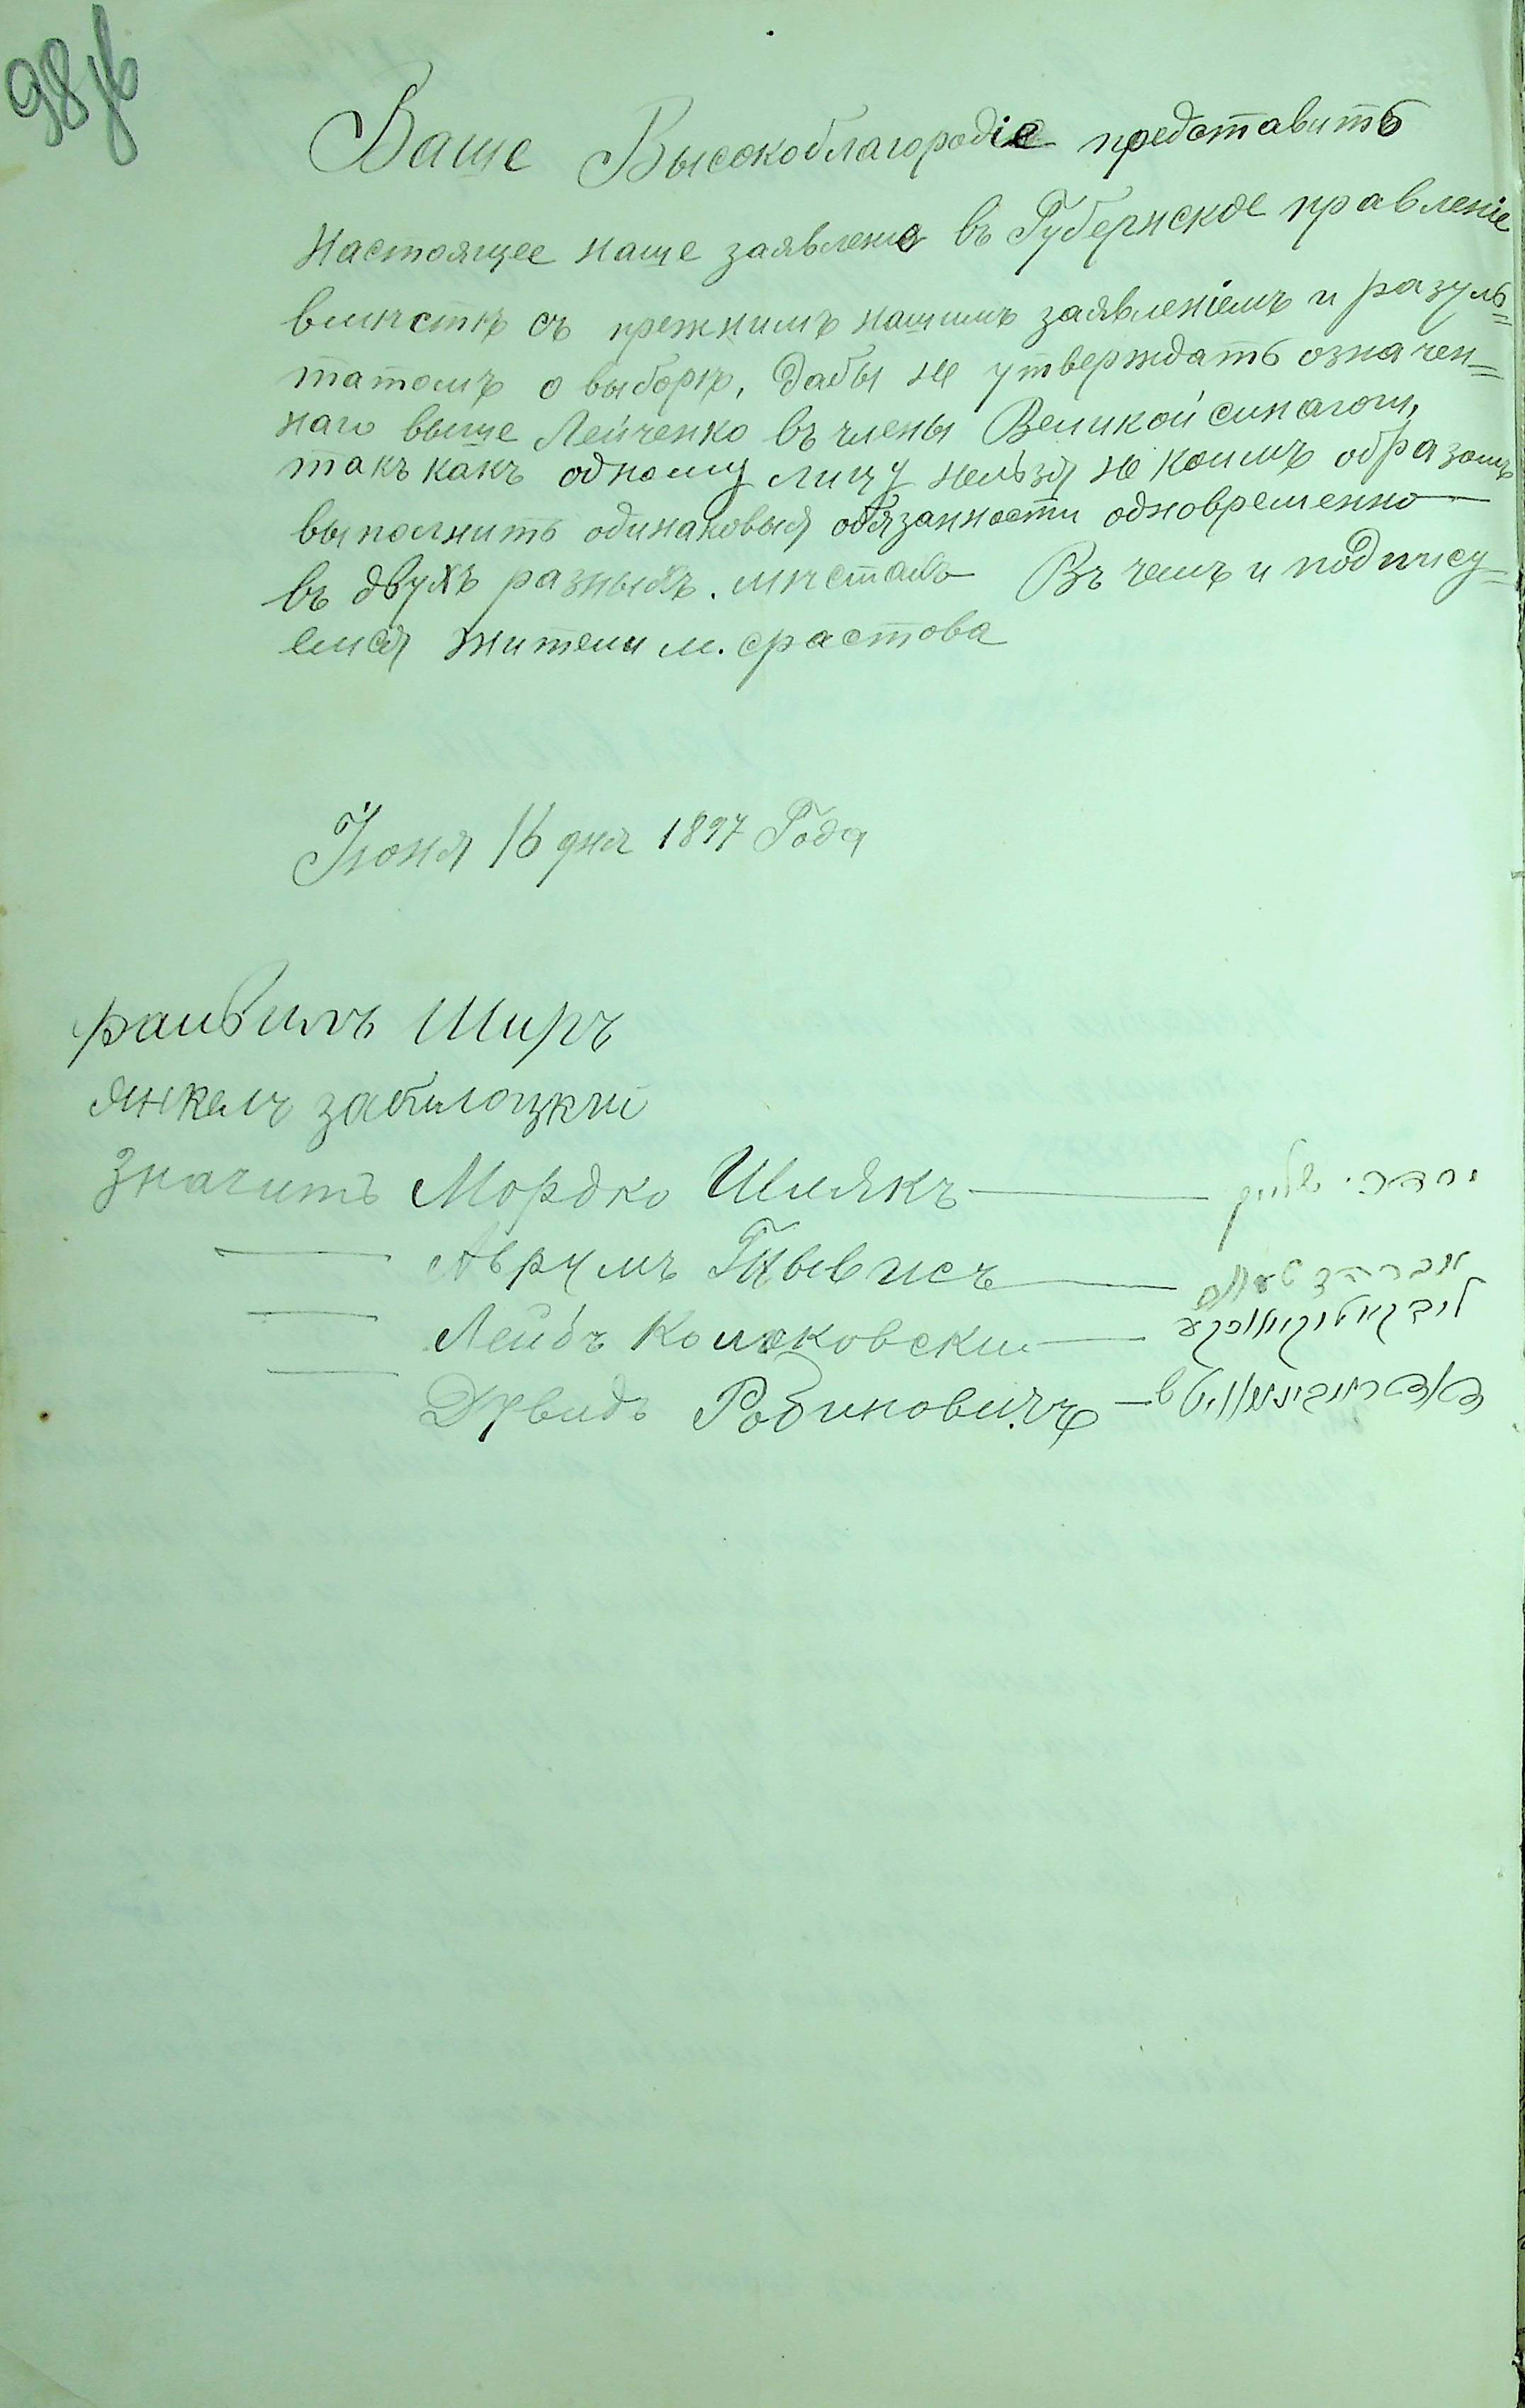 98 об
Ваше Высокоблагородіе представить
настоящее наше заявление въ Губернское правленіе
вмѣстѣ съ прежнимъ нашимъ заявленіемъ и резуль=
татомъ о выборѣ, дабы не утверждать означен=
наго выше Лейченко въ члены Великой синагоги,
такъ какъ одному лицу нельзя не коимъ образомъ
выполнить одинаковыя обязанности одновременно
въ двухъ разныхъ. мѣстахъ Въ чемъ и подпису=
емся жители м.
Іюня 16 дня 1897 Года
Ширъ
Янкель заблоцкий
Значитъ Мордко Шлякъ
Аврумъ
Лейбъ
Дувидъ Робиновичъ